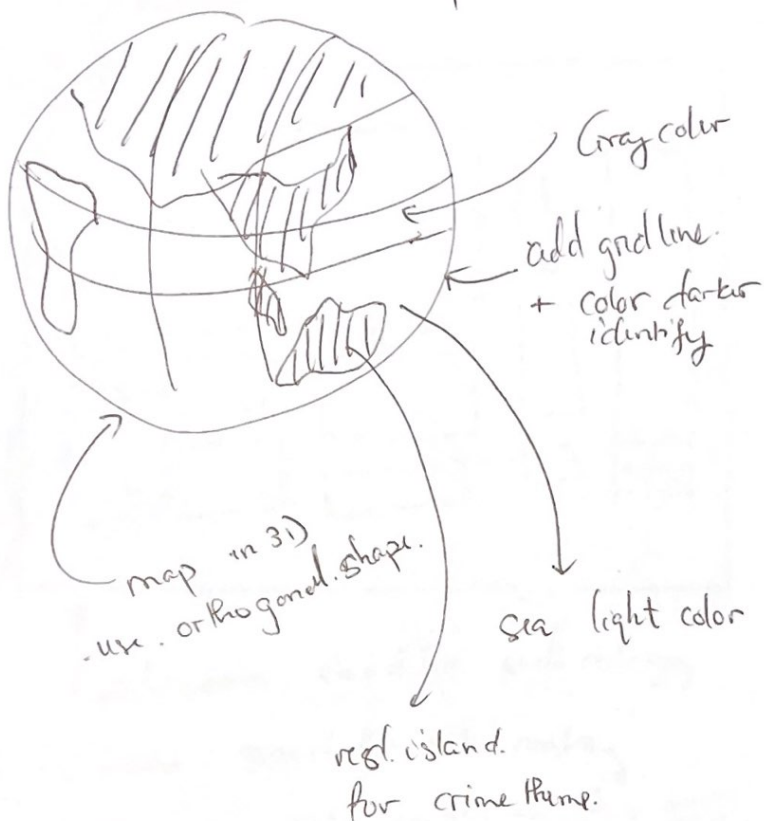 Gray color
add grid line.
+ color darker
identify
map in 3D
. use . orthogonal . shape.
sea light color
island.
for crime